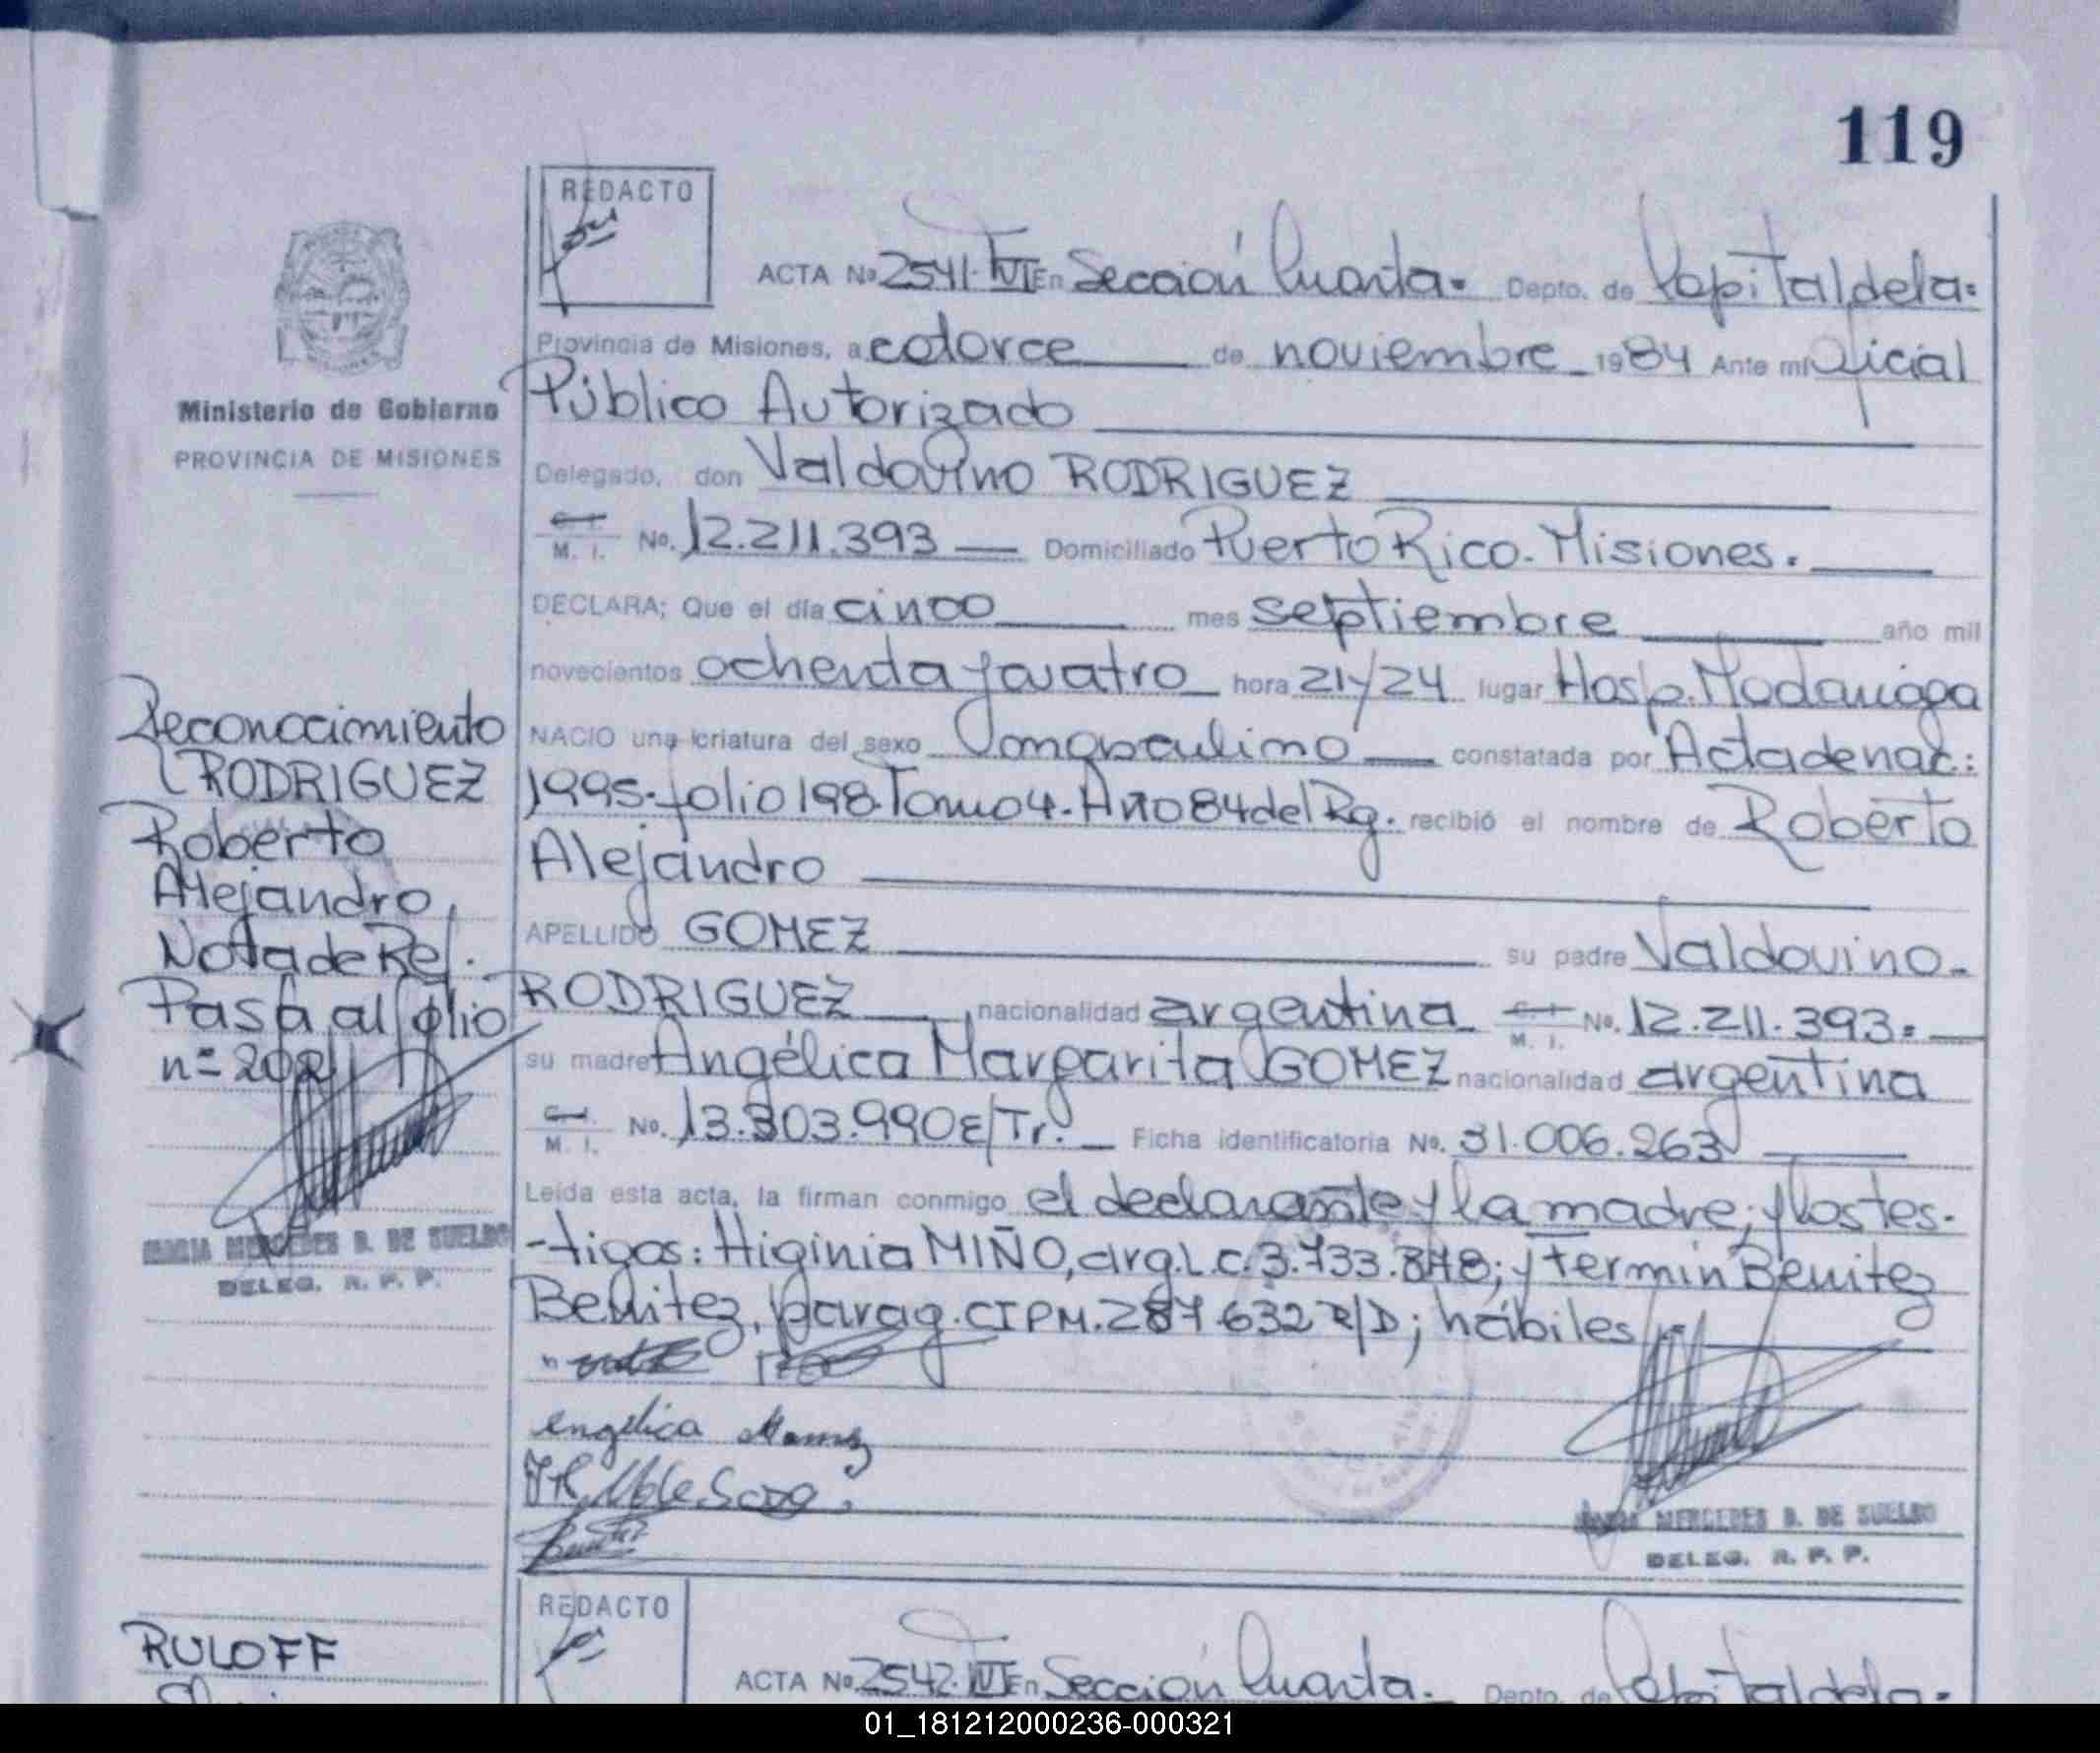 119
REDACTO
ACTA No 2541. T VI En Sección Cuarta. Depto. de Capital, de la=
Provincia de Misiones, a catorce de noviembre 1984 Ante mi Oficial
Público Autorizado
Delegado, don Valdovino RODRIGUEZ
C. I.
M. I. No. 12.211.393 Domiciliado Puerto Rico. Misiones.
DECLARA; Que el día cinco mes septiembre año mil
novecientos ochenta y cuatro hora 21y24 lugar Hosp. Madariaga
NACIO una criatura del sexo masculino constatada por Acta de nac.:
1995. folio 198. Tomo 4. Año 84 del Rg. recibió el nombre de Roberto
Alejandro
APELLIDO GOMEZ su padre Valdovino
RODRIGUEZ nacionalidad argentina C. I. M. I. No. 12.211.393=
su madre Angélica Margarita GOMEZ nacionalidad argentina
C. I.
M. I. No. 13.303.990 E/Tr. Ficha identificatoria No. 31.006.263
Leída esta acta, la firman conmigo el declarante y la madre; y los tes-
-tigos: Higinia MIÑO, arg. L.C. 3.733.848; y Fermin Benitez
Benitez, parag. CIPM. 287.632 R/D; hábiles
MARIA MERCEDES B. DE SUELDO
DELEG. R. P. P.
Ministerio de Gobierno
PROVINCIA DE MISIONES
Reconocimiento
RODRIGUEZ
Roberto
Alejandro
Nota de Ref.
Pasa al folio
nº 202
MARIA MERCEDES B. DE SUELDO
DELEG. R. P. P.
RULOFF
REDACTO
ACTA No 2542. T VI En Sección Cuarta. Depto. de Capital de la=
01_181212000236-000321